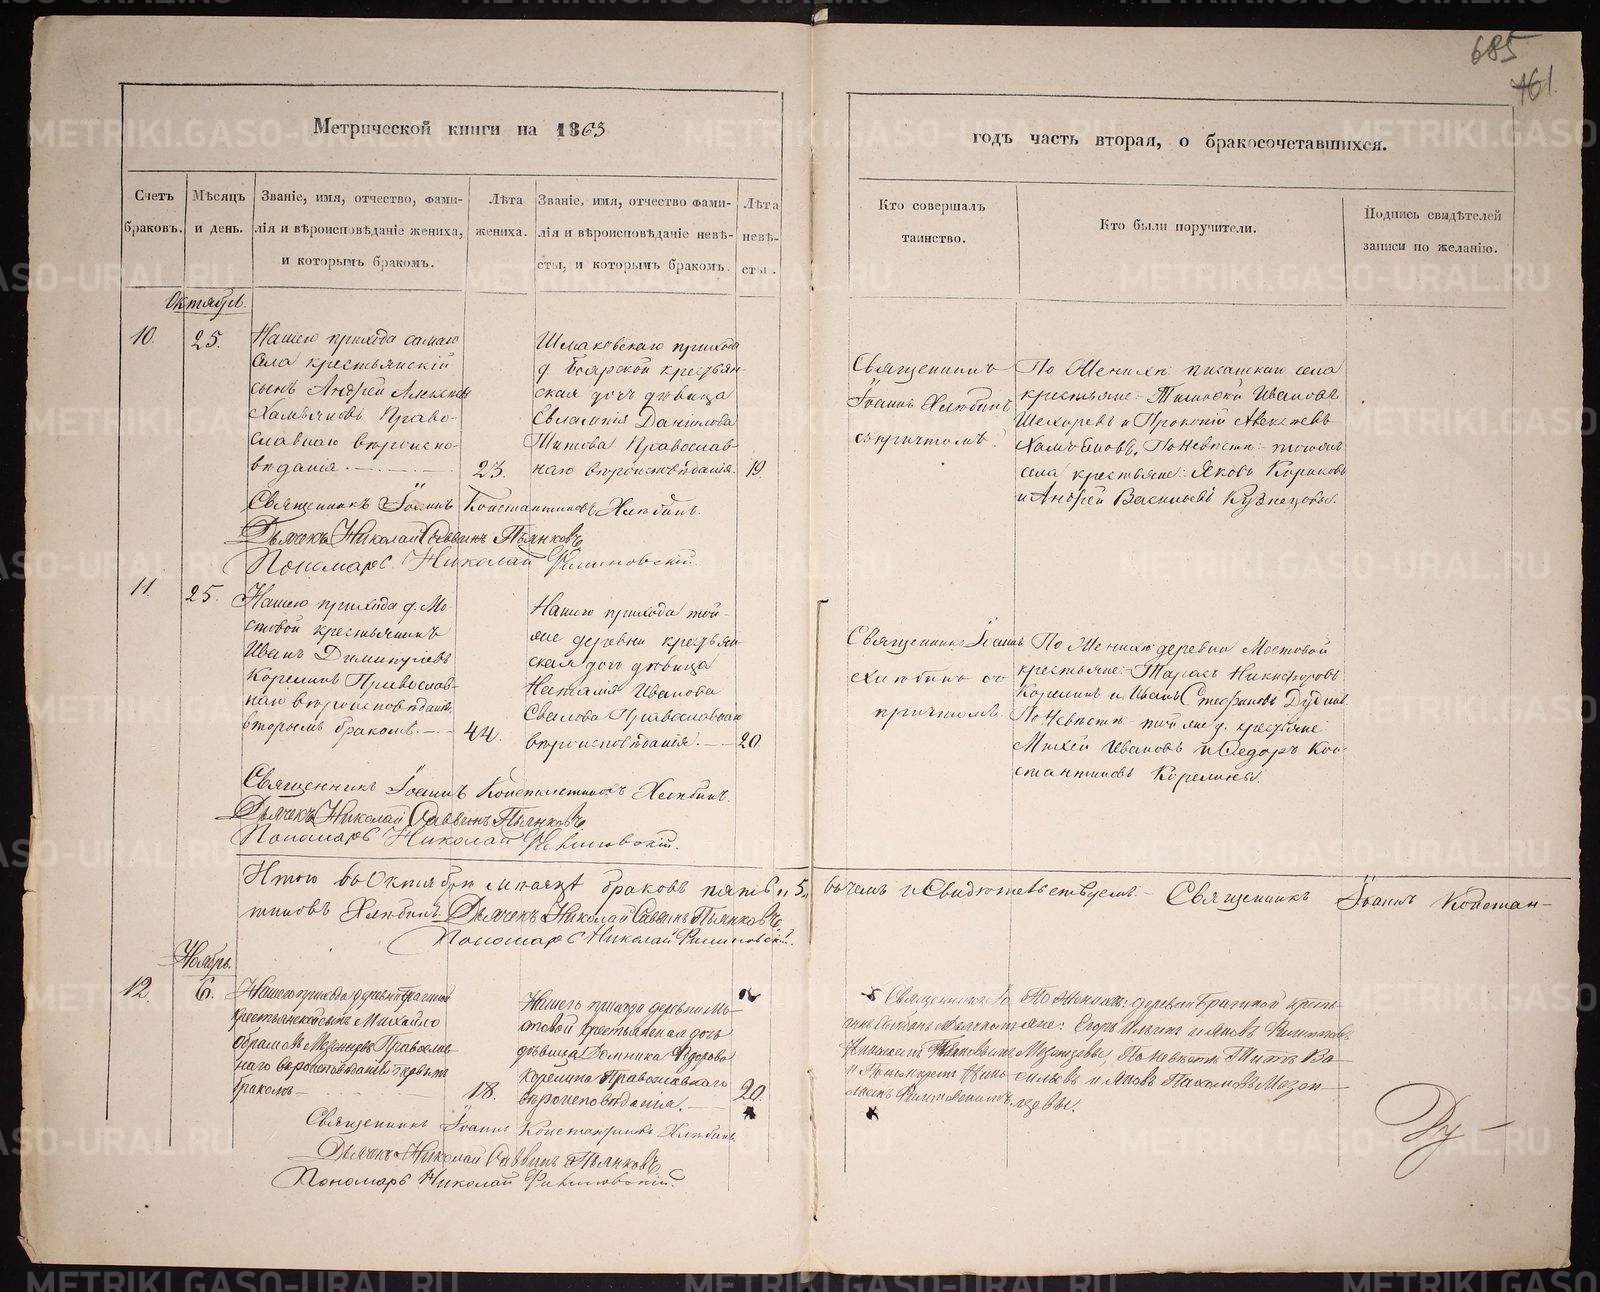 685
461
Метрической книги на 1863
годъ часть вторая, о бракосочетавшихся.
Счетъ браковъ.
Мѣсяцъ и день.
Званіе, имя, отчество, фами-
лія и вѣроисповѣданіе жениха,
и которымъ бракомъ.
Лѣта жениха.
Званіе, имя, отчество фами-
лія и вѣроисповѣданіе невѣ-
сты, и которымъ бракомъ.
Лѣта невѣ-
сты.
Кто совершалъ
таинство.
Кто были поручители.
Подпись свидѣтелей
записи по желанію.
Октябрь.
10.
25.
Нашего прихода самаго
села крестьянскій
сынъ Андрей Алексѣевъ
Халмьяновъ Право-
славнаго вѣроиспо-
вѣданія.
23.
Шмаковскаго прихода
д. Боярской крестьян-
ская дочь дѣвица
Евлампія Данилова
Титова Православ-
наго вѣроисповѣданія.
19.
Священникъ
Іоаннъ Хлѣбинъ
съ причтомъ.
По Женихѣ села
крестьяне: Тимофей Ивановъ
и Прокопій Алексѣевъ
По Невѣстѣ:
села крестьяне: Яковъ
и Андрей Васильевъ Кузнецовы.
Священникъ Іоаннъ Константиновъ Хлѣбинъ.
Дьячекъ Николай Саввинъ Пьянковъ
Пономарь Николай
11.
25.
Нашего прихода д. Мо-
стовой крестьянинъ
Иванъ Димитріевъ
Корелинъ Православ-
наго вѣроисповѣданія,
вторымъ бракомъ.
44.
Нашего прихода той-
же деревни крестьян-
ская дочь дѣвица
Наталія Иванова
Православнаго
вѣроисповѣданія.
20.
Священникъ Іоаннъ
Хлѣбинъ со
причтомъ.
По Женихѣ деревни Мостовой
крестьяне: Тарасъ Никифоровъ
Корелинъ и Иванъ Стефановъ
По Невѣстѣ той же д. крестьяне
Михей Ивановъ и Федоръ Кон-
стантиновъ Корелины.
Священникъ Іоаннъ Константиновъ Хлѣбинъ.
Дьячекъ Николай Саввинъ Пьянковъ
Пономарь Николай
Итого въ Октябрѣ мѣсяцѣ браковъ пять „5„ въ чемъ и Свидѣтельствуемъ: Священникъ Іоаннъ Констан-
тиновъ Хлѣбинъ Дьячекъ Николай Саввинъ Пьянковъ
Пономарь Николай
Ноябрь.
12.
6.
Нашего прихода деревни Брагиной
крестьянскій сынъ Михайло
Православ-
наго вѣроисповѣданія первымъ
бракомъ
18.
Нашего прихода деревни Мо-
стовой крестьянская дочь
дѣвица Домника Федорова
Корелина Православнаго
вѣроисповѣданія.
20.
Священникъ Іо
По Женихѣ: деревни Брагиной кресть-
яне: Егоръ Ильинъ и Яковъ
По невѣстѣ: Титъ Ва-
сильевъ и Яковъ Пахомовъ Мезен-
цевы.
Священникъ Іоаннъ Константиновъ Хлѣбинъ
Дьячекъ Николай Саввинъ Пьянковъ
Пономарь Николай
Ду-
METRIKI.GASO-URAL.RU